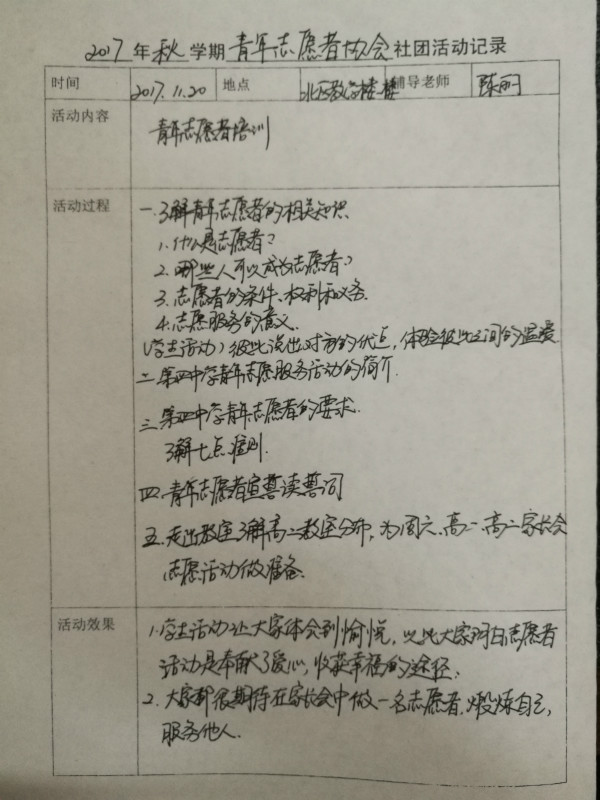 2017年秋学期青年志愿者协会社团活动记录
时间 2017.11.20 地点 北区教学楼 辅导老师 陈丽
活动内容 青年志愿者培训
活动过程 一.了解青年志愿者的相关知识
1.什么是志愿者?
2.哪些人可以成为志愿者?
3.志愿者的条件、权利和义务.
4.志愿服务的意义.
(学生活动)彼此说出对方的优点,体验彼此之间的温暖
二.第四中学青年志愿服务活动的简介.
三.第四中学青年志愿者的要求.
了解七点准则.
四.青年志愿者宣誓读誓词
五.走出教室了解高二教室分布,为周六、高一、高二家长会
志愿活动做准备.
活动效果 1.学生活动让大家体会到愉悦,以此大家明白志愿者
活动是奉献了爱心,收获幸福的途径.
2.大家都很期待在家长会中做一名志愿者,煅炼自己,
服务他人.